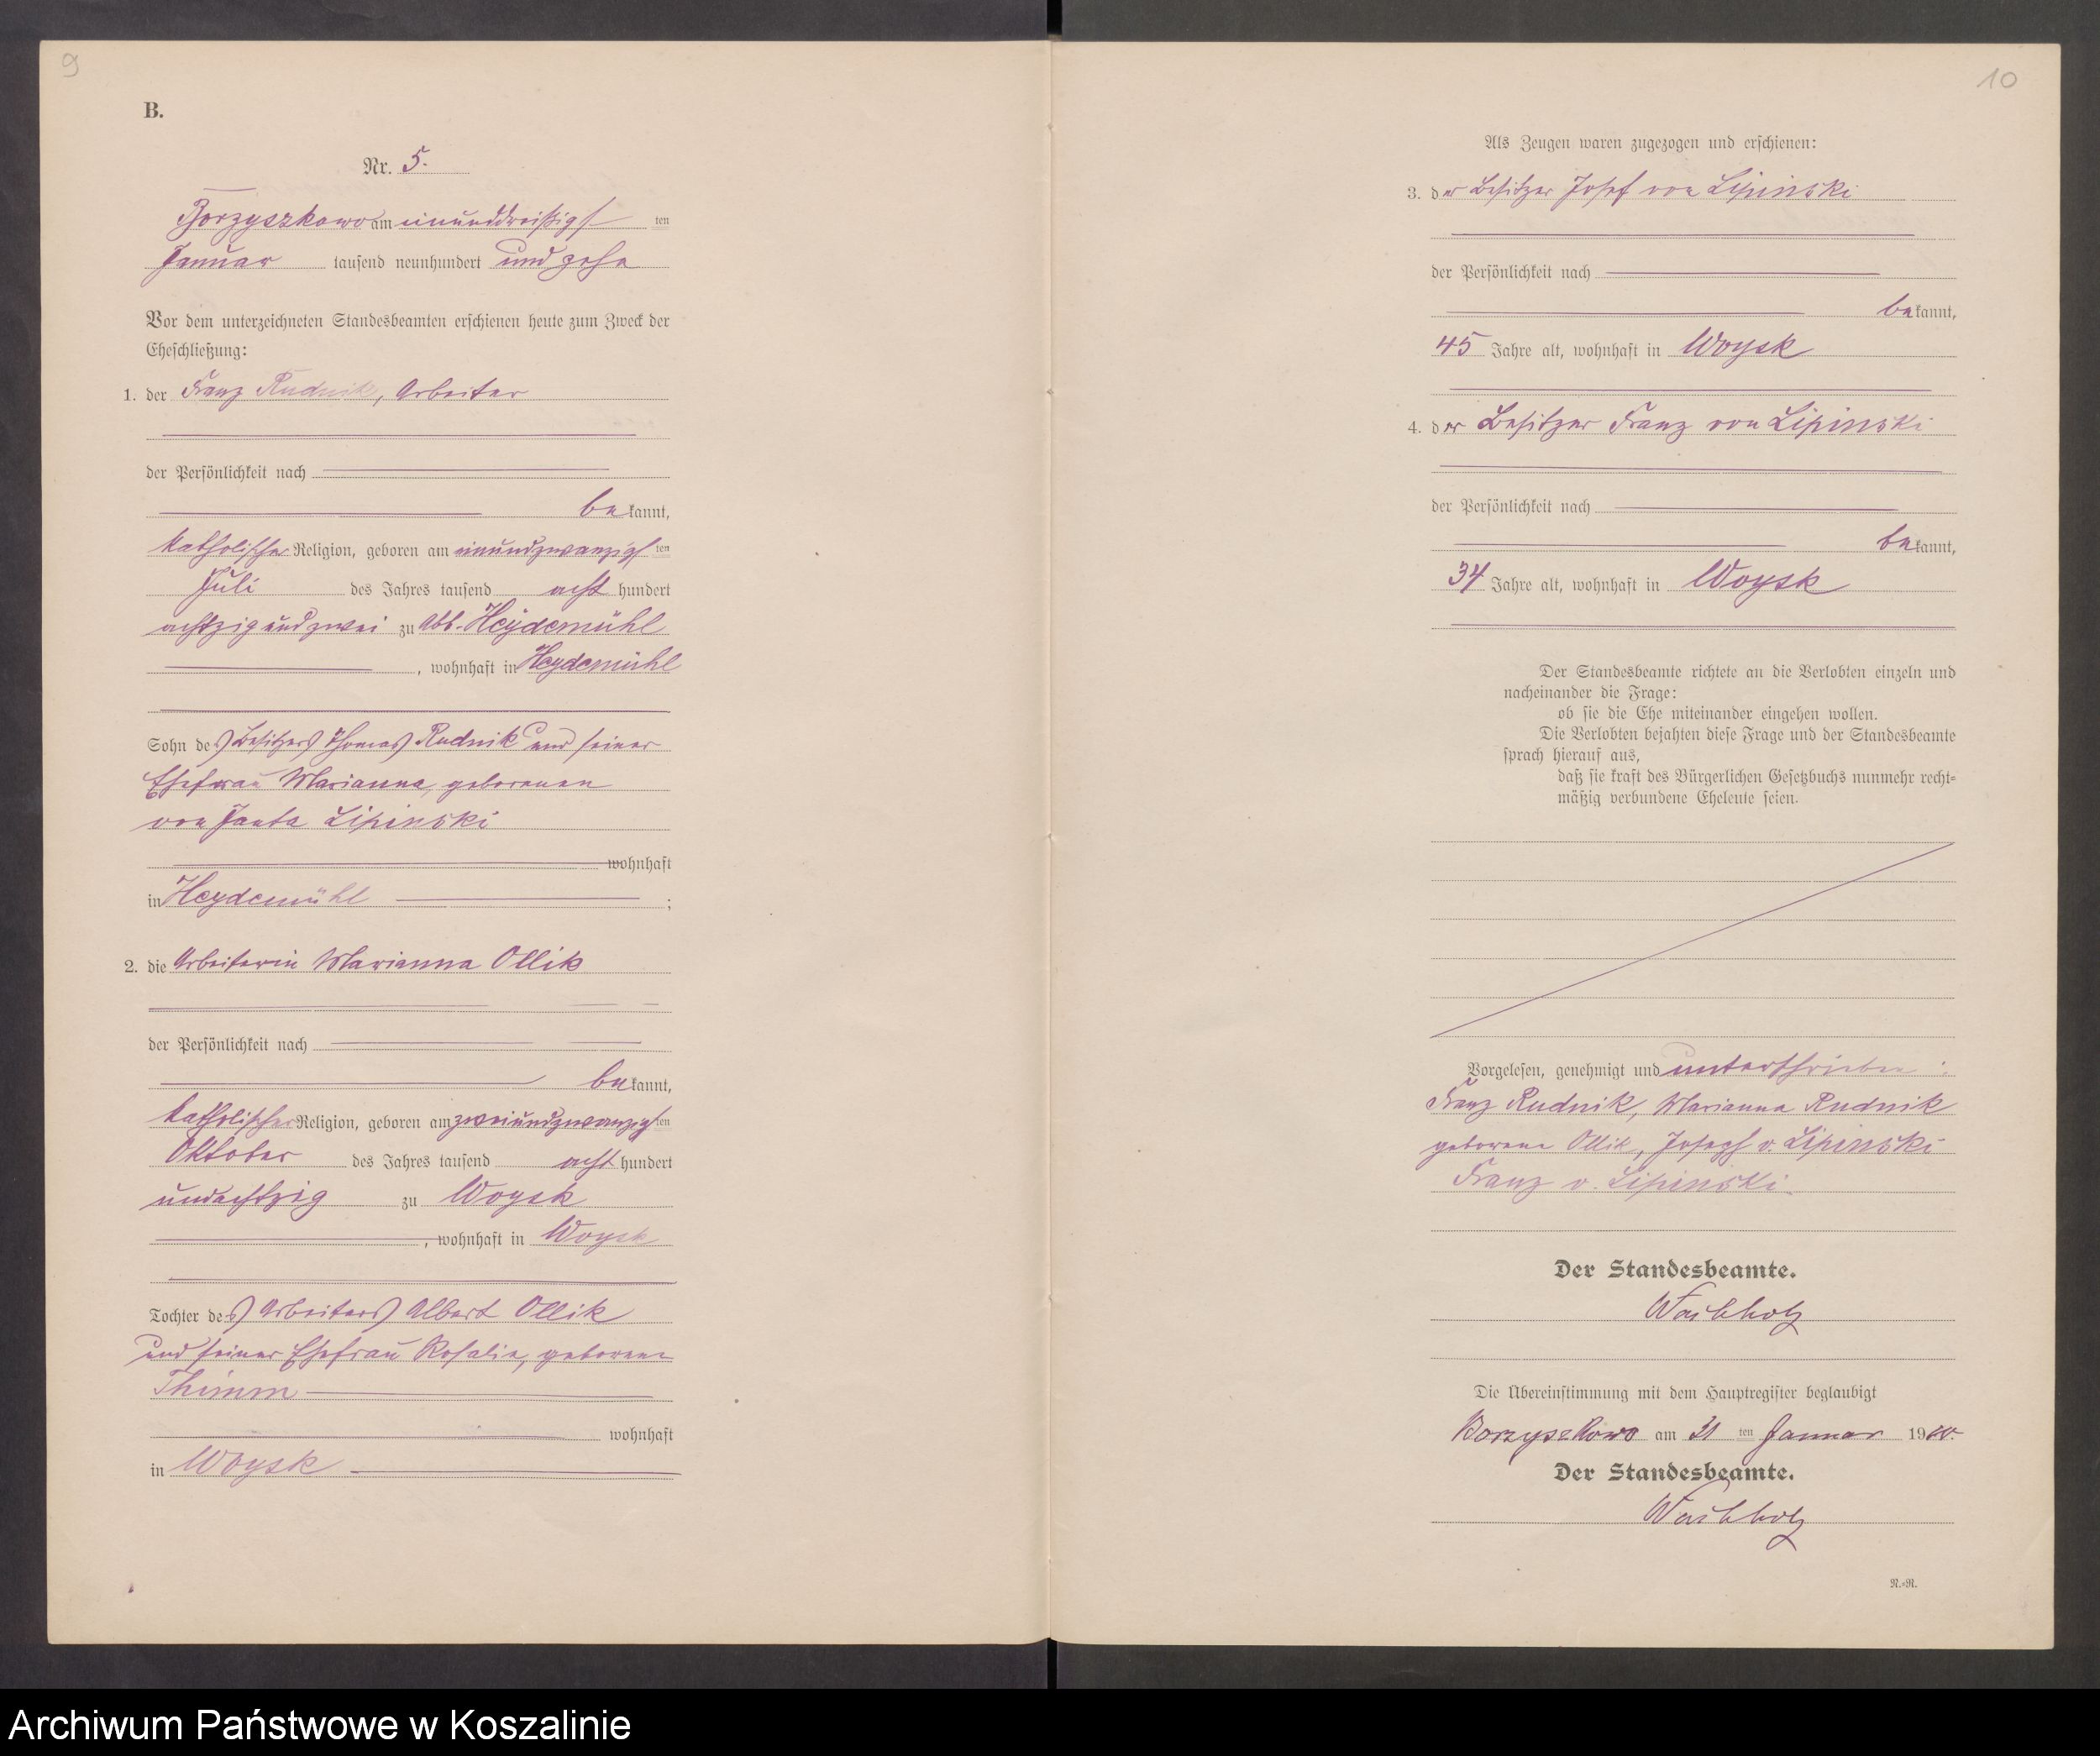 9
B.
Nr. 5.
Borzyszkowo am einunddreißigsten
Januar tausend neunhundert und zehn
Vor dem unterzeichneten Standesbeamten erschienen heute zum Zweck der
Eheschließung:
1. der Franz Rudnik, Arbeiter
der Persönlichkeit nach
bekannt,
katholischer Religion, geboren am einundzwanzigsten
Juli des Jahres tausend acht hundert
achtzig und zwei zu Abb. Heydemühl
, wohnhaft in Heydemühl
Sohn des Besitzers Thomas Rudnik und seiner
Ehefrau Marianna, geborenen
von Janta Lipinski
wohnhaft
in Heydemühl ;
2. die Arbeiterin Marianna Ollik
der Persönlichkeit nach
bekannt,
katholischer Religion, geboren am zweiundzwanzigsten
Oktober des Jahres tausend acht hundert
undachtzig zu Woysk
, wohnhaft in Woysk
Tochter des Arbeiters Albert Ollik
und seiner Ehefrau Rosalie, geborene
Thimm
wohnhaft
in Woysk
10
Als Zeugen waren zugezogen und erschienen:
3. der Besitzer Josef von Lipinski
der Persönlichkeit nach
bekannt,
45 Jahre alt, wohnhaft in Woysk
4. der Besitzer Franz von Lipinski
der Persönlichkeit nach
bekannt,
34 Jahre alt, wohnhaft in Woysk
Der Standesbeamte richtete an die Verlobten einzeln und
nacheinander die Frage:
ob sie die Ehe miteinander eingehen wollen.
Die Verlobten bejahten diese Frage und der Standesbeamte
sprach hierauf aus,
daß sie kraft des Bürgerlichen Gesetzbuchs nunmehr recht-
mäßig verbundene Eheleute seien.
Vorgelesen, genehmigt und unterschrieben:
Franz Rudnik, Marianna Rudnik
geborene Ollik, Joseph v. Lipinski
Franz v. Lipinski.
Der Standesbeamte.
Die Übereinstimmung mit dem Hauptregister beglaubigt
Borzyszkowo am 31 ten Januar 1910.
Der Standesbeamte.
N.-R.
Archiwum Państwowe w Koszalinie